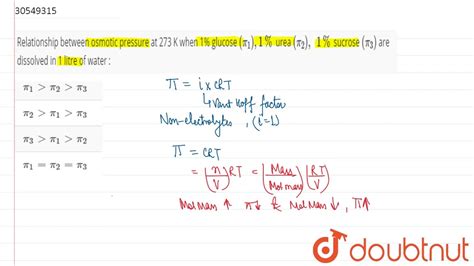 30549315
Relationship between osmotic pressure at 273 K when 1% glucose (π₁), 1% urea (π₂), 1% sucrose (π₃) are
dissolved in 1 litre of water :
π₁ > π₂ > π₃
π₂ > π₁ > π₃
π₃ > π₁ > π₂
π₁ = π₂ = π₃
π = i × CRT
↳ Vant Hoff factor
Non-electrolytes, (i=1)
π = CRT
= (n/V) RT = (Mass/Molmass) (RT/V)
Mol Mass ↑ π↓ & Mol Mass ↓, π↑
doubtnut